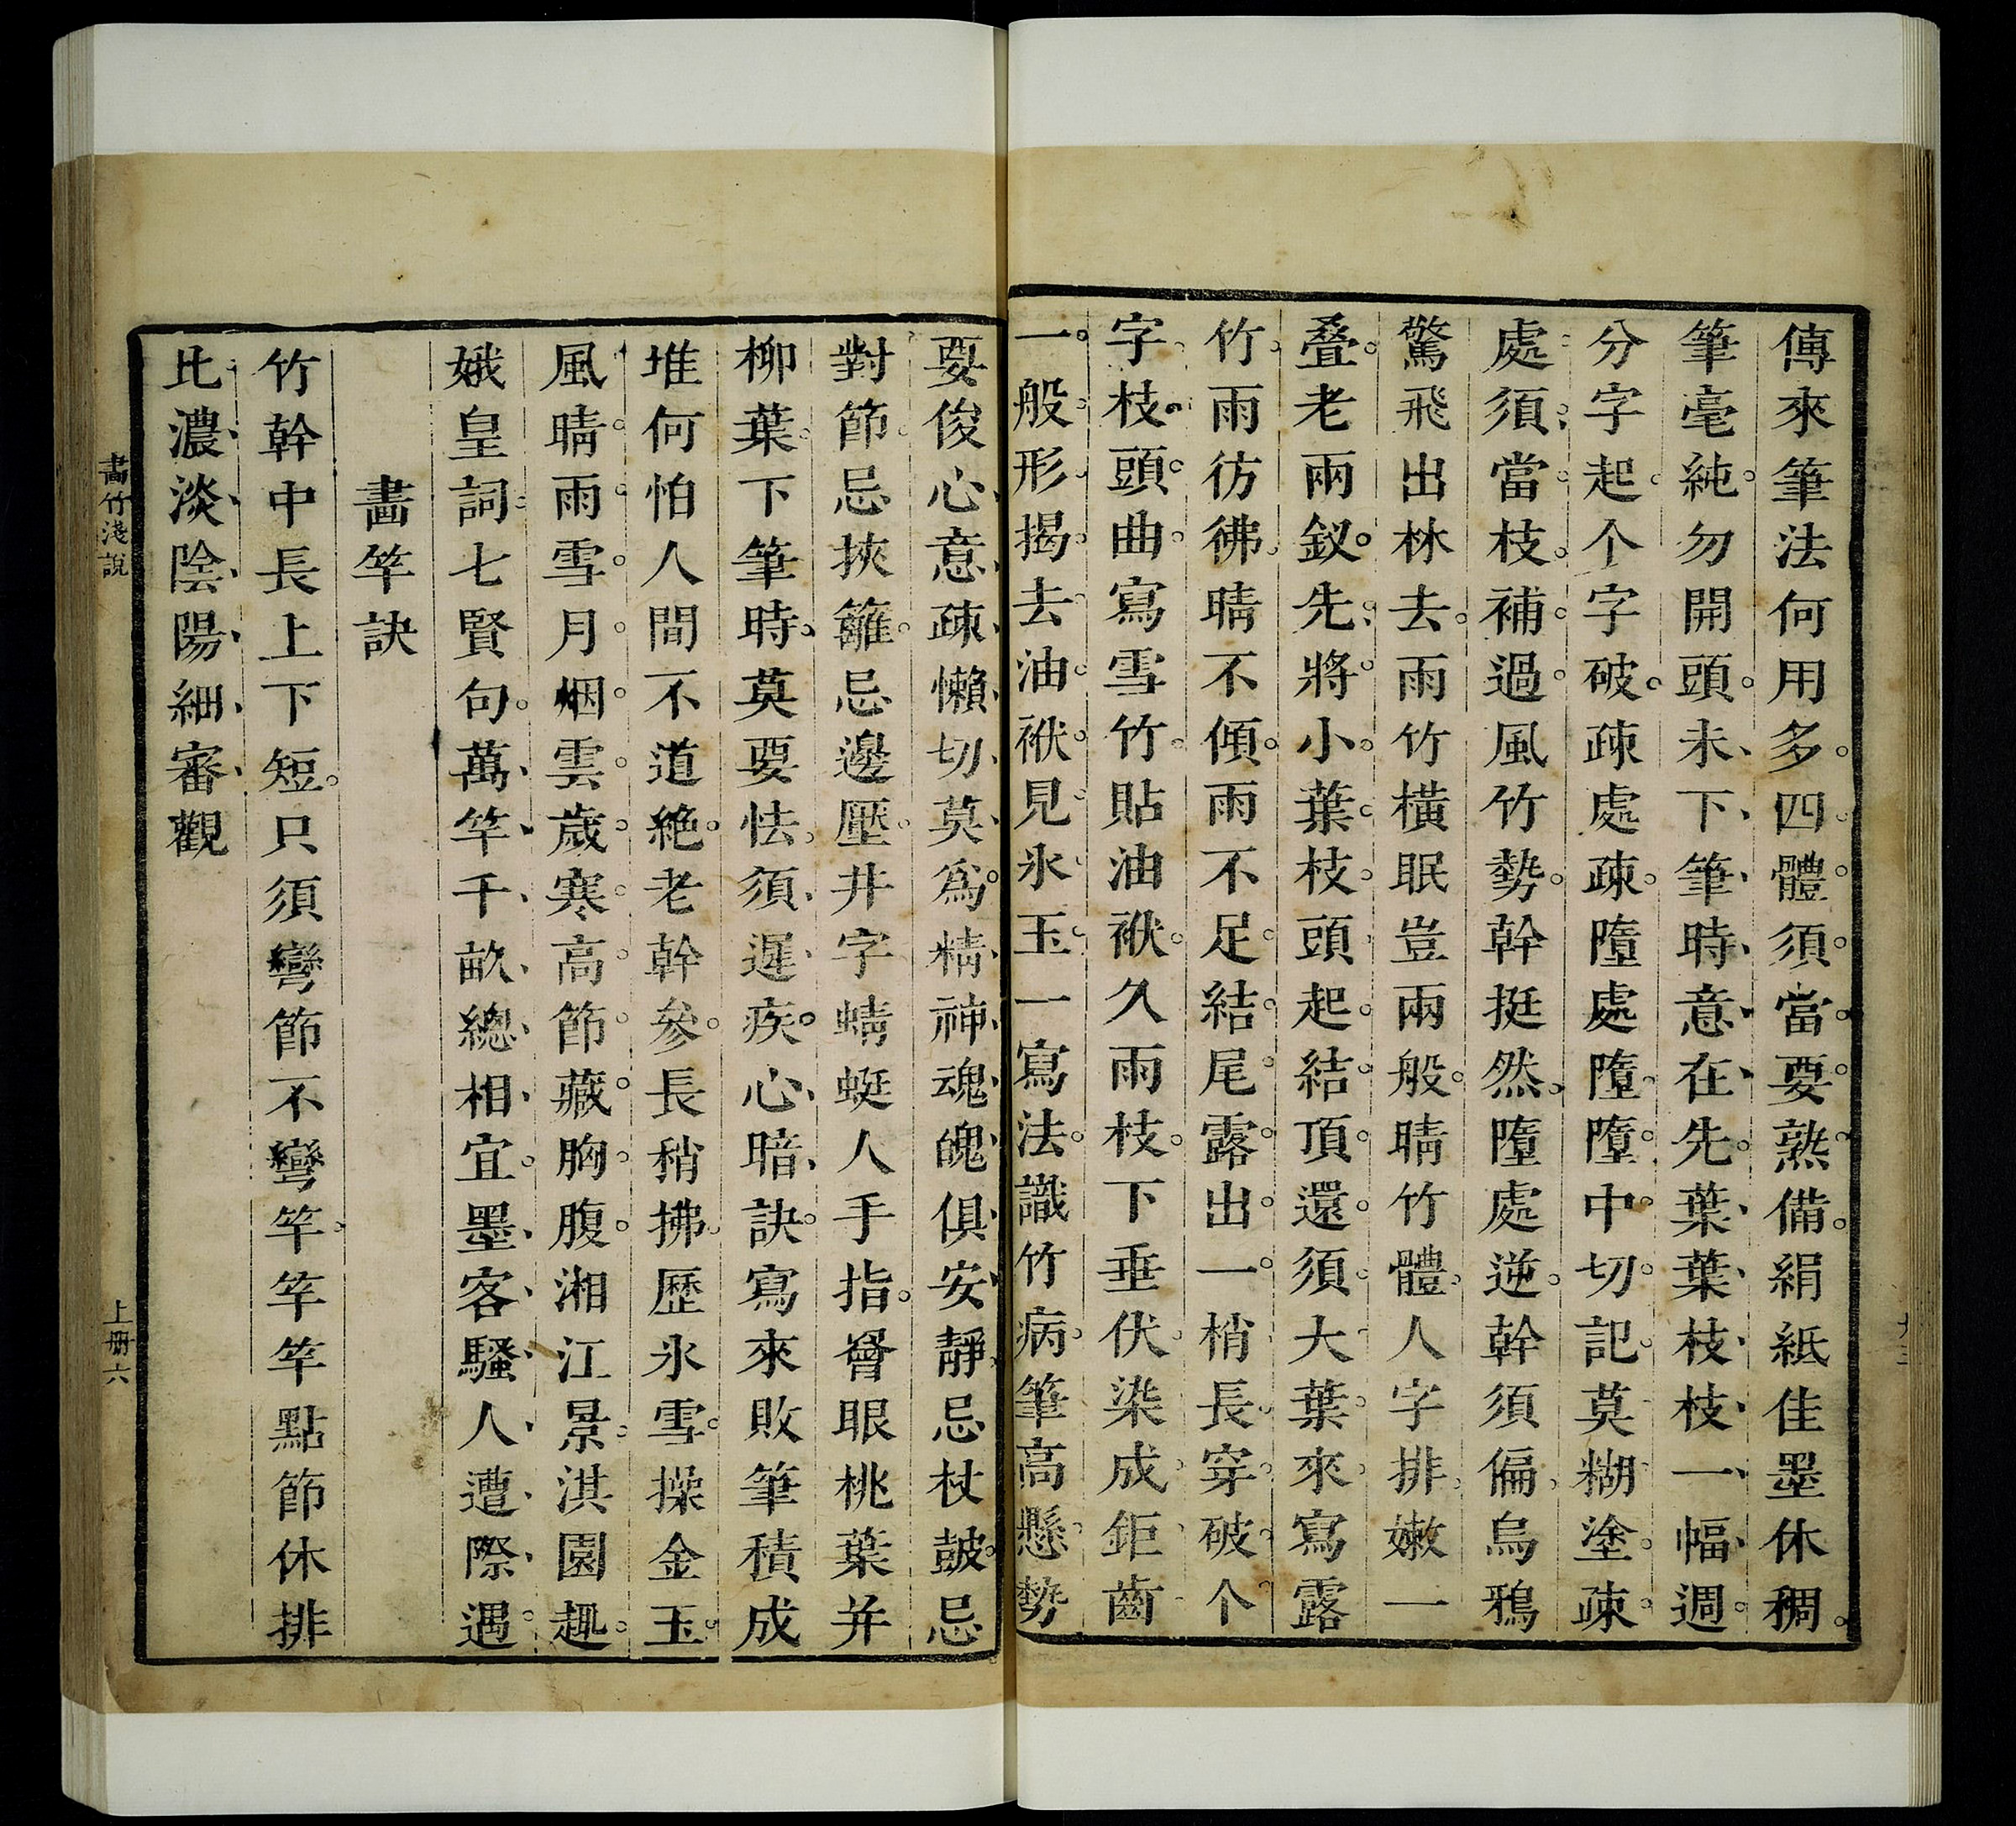 傳來筆法何用多四體須當要熟備絹紙佳墨休稠
筆毫純勿開頭未下筆時意在先葉葉枝枝一幅週
分字起个字破疎處疎墮處墮墮中切記莫糊塗疎
處須當枝補過風竹勢幹挺然墮處逆幹須偏烏鴉
驚飛出林去雨竹橫眠豈兩般晴竹體人字排嫩一
叠老兩釵先將小葉枝頭起結頂還須大葉來寫露
竹雨彷彿晴不傾雨不足結尾露出一梢長穿破个
字枝頭曲寫雪竹貼油袱久雨枝下垂伏染成鉅齒
一般形揭去油袱見氷玉一寫法識竹病筆高懸勢
要俊心意疎懶切莫爲精神魂魄俱安靜忌杖皷忌
對節忌挾籬忌邊壓井字蜻蜓人手指罾眼桃葉并
柳葉下筆時莫要怯須遲疾心暗訣寫來敗筆積成
堆何怕人間不道絶老幹參長稍拂歷氷雪操金玉
風晴雨雪月烟雲歲寒高節藏胸腹湘江景淇園趣
娥皇詞七賢句萬竿千畝總相宜墨客騷人遭際遇
畵竿訣
竹幹中長上下短只須彎節不彎竿竿竿點節休排
比濃淡陰陽細審觀
畵竹淺說
上册六